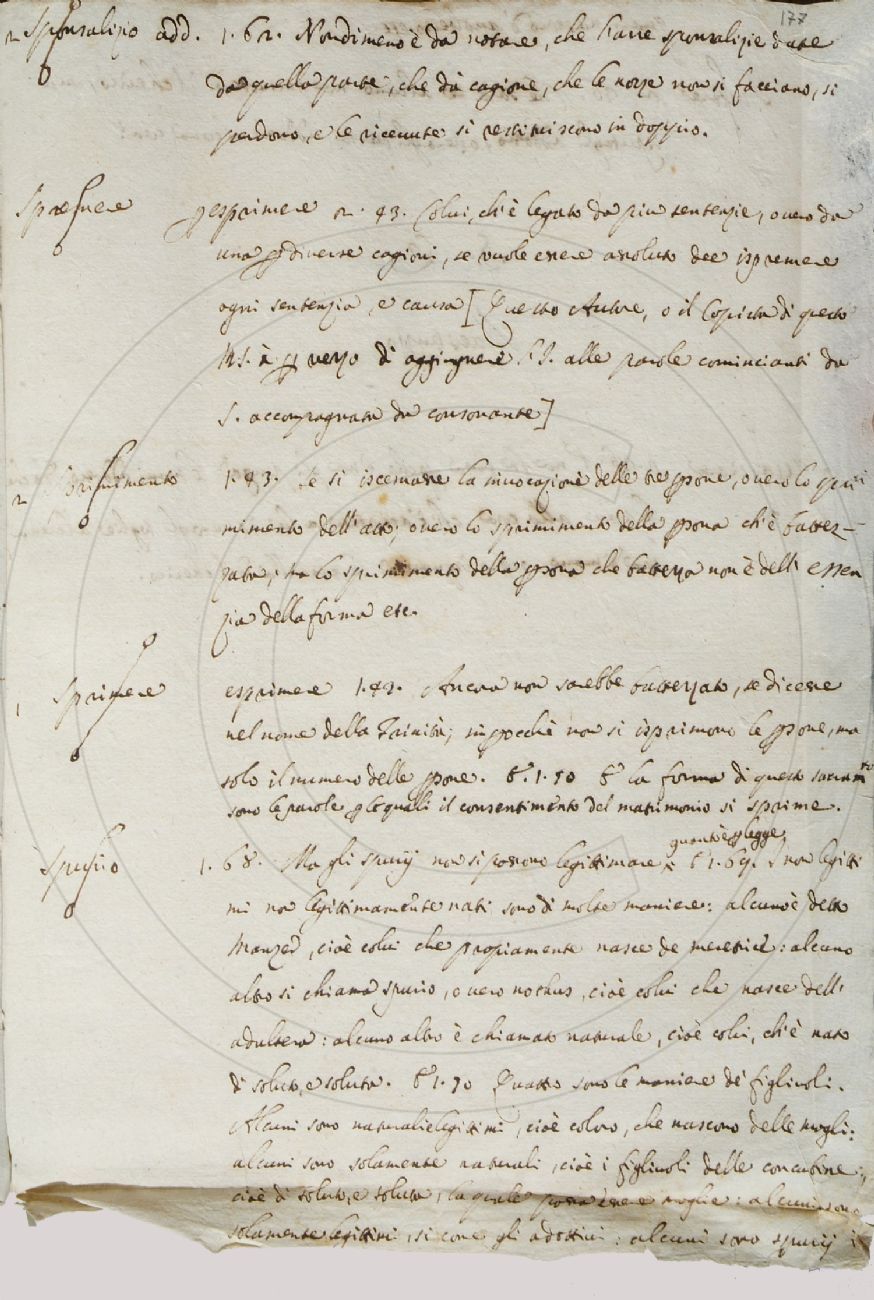 177
2 Sponsalizio add. 1. 62. Nondimeno è da notare, che l'arre sponsalizie date
da quella parte, che dà cagione, che le nozze non si facciano, si
perdono, e le ricevute si restituiscono in doppio.
Spremere esprimere 2. 43. Colui, ch'è legato da più sentenzie, overo da
una p diverse cagioni, se vuole essere assoluto dee ispremere
ogni sentenzia, e causa [Questo Autore, o il Copista di questo
MS. à p vezzo di aggingnere l'I. alle parole comincianti da
S. accompagnata da consonante]
2 Sprimimento 1. 43. Se si iscemasse la invocazione delle tre psone, overo lo spri
mimento dell'atto; overo lo sprimimento della psona ch'è battez-
zata; ma lo sprimimento della psona che battezza non è dell'essen
zia della forma etc.
1 Sprimere esprimere 1. 43. Ancora non sarebbe battezzato, se dicesse
nel nome della Trinità; impocchè non si isprimono le psone, ma
solo il numero delle psone. E 1. 50 E la forma di questo sacramto
sono le parole p le quali il consentimento del matrimonio si sprime.
quanto è p legge
Spurio 1. 68. Ma gli spurij non si possono legittimare E 1. 69. I non legitti
mi no legittimamente nati sono di molte maniere: alcuno è detto
Manzer, cioè colui che propiamente nasce de meretrice: alcuno
altro si chiama spurio, overo nothus, cioè colui che nasce dell'
adultera: alcuno altro è chiamato naturale, cioè colui, ch'è nato
di soluto, e soluta. E 1. 70 Quatto sono le maniere de' figliuoli.
Alcuni sono naturali e legittimi, cioè coloro, che nascono delle mogli:
alcuni sono solamente naturali, cioè i figliuoli delle concubine,
cioè di soluto, e soluta, la quale possa essere moglie: alcuni sono
solamente legittimi, sì come gli adottivi: alcuni sono spurij i